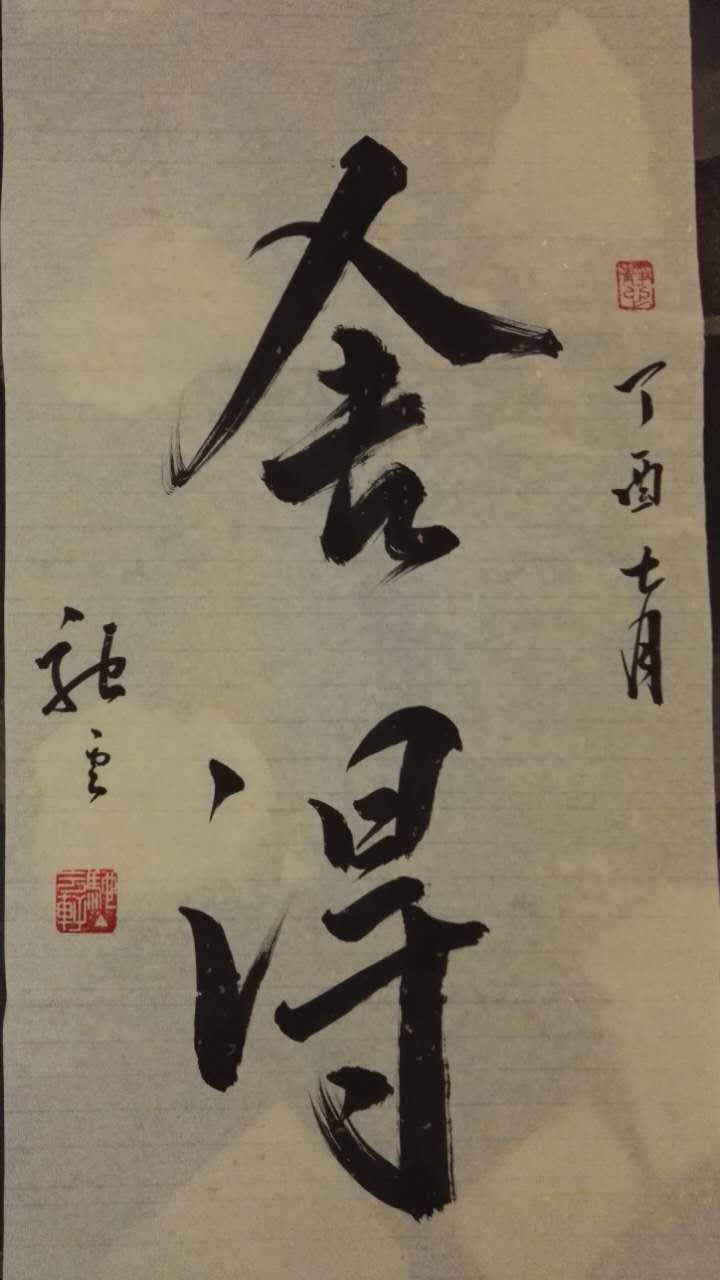 丁酉七月
舍得
驰云